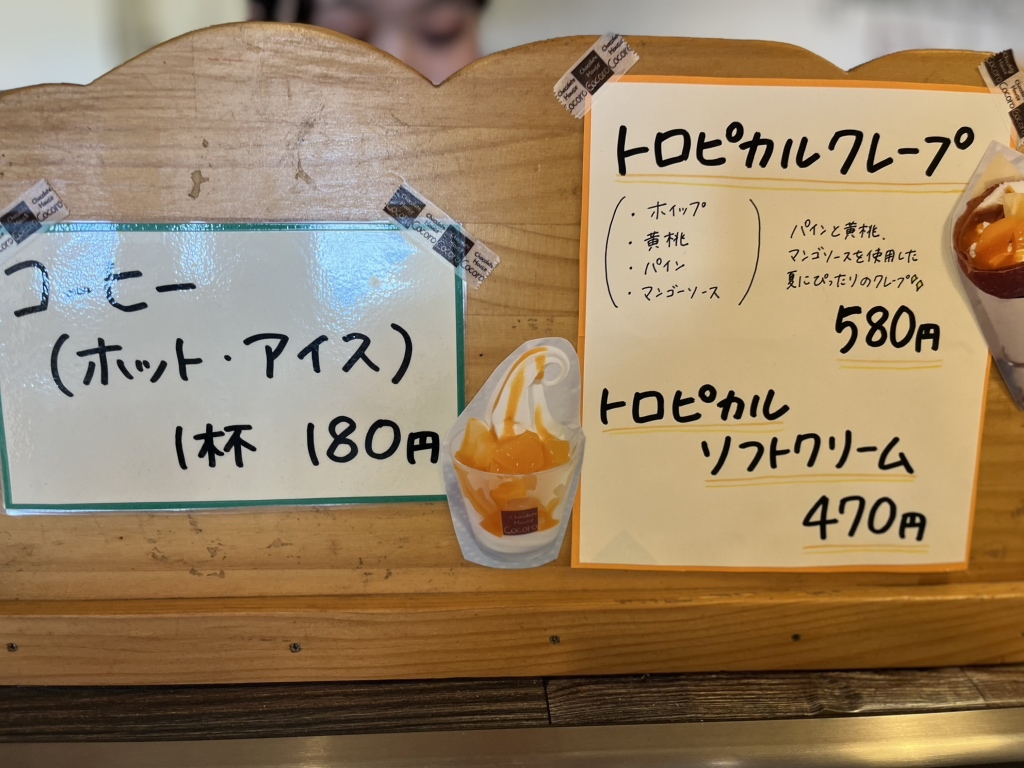 コーヒー
(ホット・アイス)
1杯 180円
トロピカルクレープ
・ホイップ
・黄桃
・パイン
・マンゴーソース
パインと黄桃、
マンゴソースを使用した
夏にぴったりのクレープ♪
580円
トロピカル
ソフトクリーム
470円
Chocolate
House
Cocoro